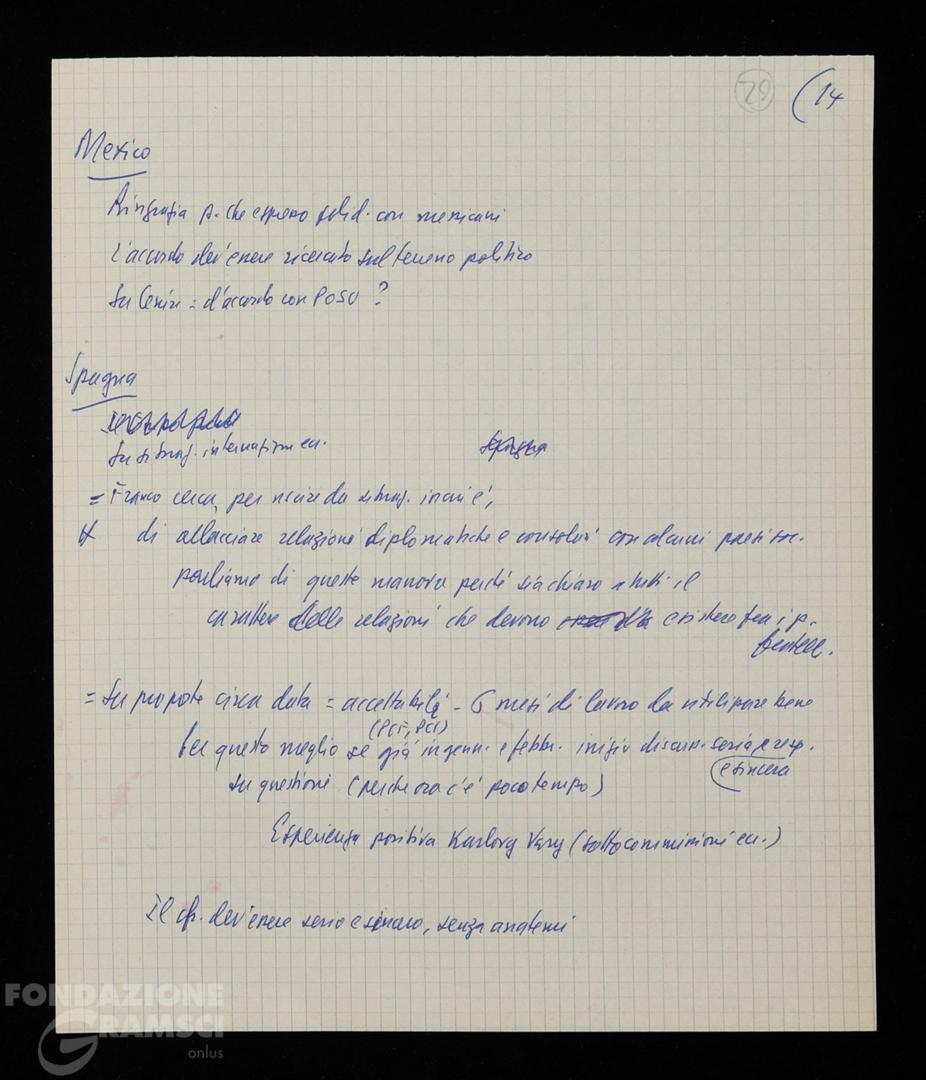 29
(14
Mexico
Ringrazia p. che espresso solid. con messicani
L'accordo dev'essere ricercato sul terreno politico
Su = d'accordo con POSU ?
Spagna
Su situaz. internaz.
Spagna
= Franco cerca, per uscire da situaz. in cui è,
di allacciare relazioni diplomatiche e consolari con alcuni paesi soc.
parliamo di questa manovra perché sia chiaro a tutti il
carattere delle relazioni che devono esistere fra i p.
fratell.
= Su proposte circa data = accettabili - 6 mesi di lavoro da utilizzare bene
(PCF, PCI)
Per questo meglio se già in genn. e febbr. inizio discuss. seria e resp.
e sincera
su questioni (perché ora c'è poco tempo)
Esperienza positiva Karlovy Vary (sottocommissioni ecc.)
Il dev'essere serio e sincero, senza anatemi
FONDAZIONE
GRAMSCI
onlus